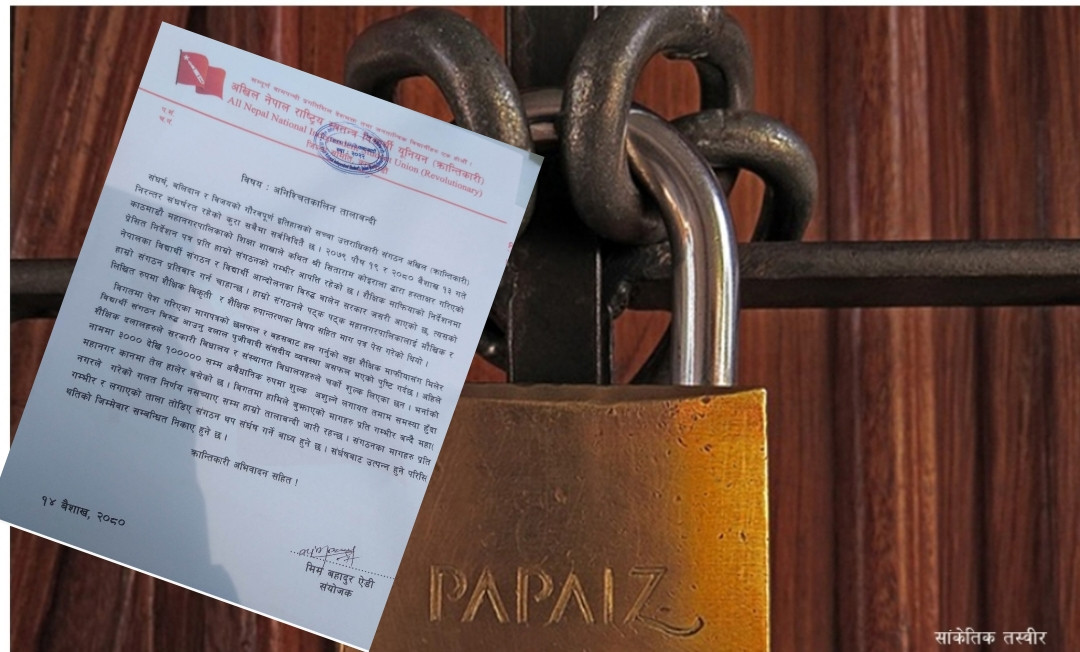 अखिल नेपाल राष्ट्रिय स्वतन्त्र विद्यार्थी युनियन (क्रान्तिकारी)
All Nepal National Union (Revolutionary)
प.सं.
च.नं.
विषय : अनिश्चितकालिन तालाबन्दी
संघर्ष, बलिदान र विजयको गौरवपूर्ण इतिहासको सच्चा उत्तराधिकारी संगठन अखिल (क्रान्तिकारी)
निरन्तर संघर्षरत रहेको कुरा सबैमा सर्वविदितै छ । २०७९ पौष १९ र २०८० बैशाख १३ गते
काठमाडौं महानगरपालिकाको शिक्षा शाखाले कथित श्री सिताराम कोइराला द्वारा हस्ताक्षर गरिएको
प्रेसित निर्देशन पत्र प्रति हाम्रो संगठनको गम्भीर आपत्ति रहेको छ । शैक्षिक माफियाको निर्देशनमा
नेपालका विद्यार्थी संगठन र विद्यार्थी आन्दोलनका बिरुद्ध बालेन सरकार जसरी आएको छ, त्यसको
हाम्रो संगठन प्रतिबाद गर्न चाहान्छ । हाम्रो संगठनले पटक् पटक् महानगरपालिकालाई मौखिक र
लिखित रुपमा शैक्षिक बिकृती र शैक्षिक रुपान्तरणका विषय सहित माग पत्र पेस गरेको थियो ।
बिगतमा पेश गरिएका मागपत्रको छलफल र बहसबाट हल गर्नुको सट्टा शैक्षिक माफीयासंग मिलेर
विद्यार्थी संगठन बिरुद्ध आउनु दलाल पुजीवादी संसदीय व्यवस्था असफल भएको पुष्टि गर्दछ । अहिले
शैक्षिक दलालहरुले सरकारी विद्यालय र संस्थागत विद्यालयहरुले चर्को शुल्क लिएका छन । भर्नाको
नाममा ३००० देखि १००००० सम्म अबैधानिक रुपमा शुल्क अशुल्ने लगायत तमाम समस्या हुँदा
महानगर कानमा तेल हालेर बसेको छ । बिगतमा हामिले बुझाएको मागहरु प्रति गम्भीर बन्दै महा
नगरले गरेको गलत निर्णय नसच्याए सम्म हाम्रो तालाबन्दी जारी रहन्छ । संगठनका मागहरु प्रति
गम्भीर र लगाएको ताला तोडिए संगठन थप संर्घष गर्ने बाध्य हुने छ । संर्घषबाट उत्पन्न हुने परिसि
थतिको जिम्मेवार सम्बन्धित निकाए हुने छ ।
क्रान्तिकारी अभिवादन सहित !
१४ बैशाख, २०८०
मिम बहादुर ऐडी
संयोजक
PAPAIZ
सांकेतिक तस्वीर